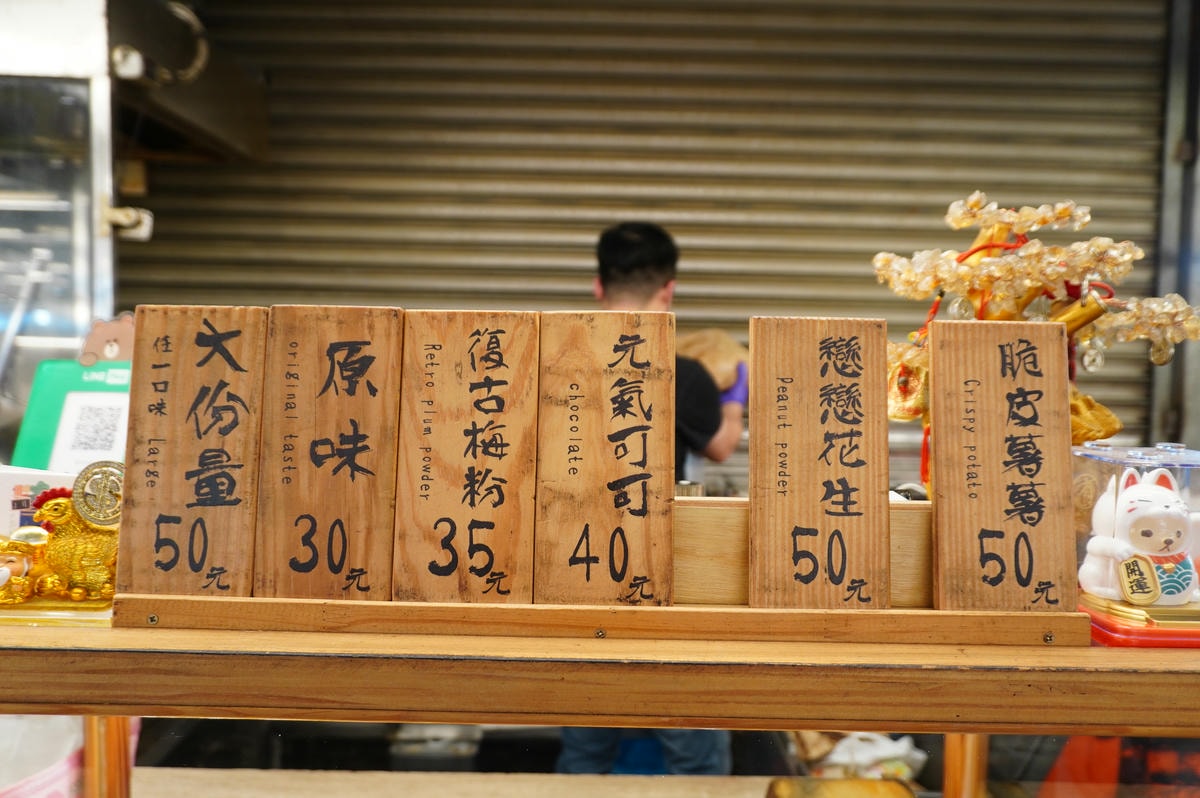 大份量
任一口味 Large
50元
原味
original taste
30元
復古梅粉
Retro plum powder
35元
元氣可可
chocolate
40元
戀戀花生
Peanut powder
50元
脆皮薯薯
Crispy potato
50元
開運
LINE